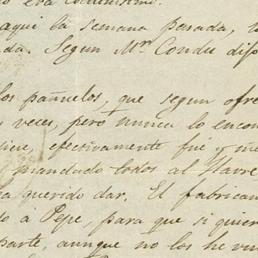 aqui la semana pasada,
da. Segun Mr. Condie dijo
los pañuelos, que segun ofre
veces, pero nunca lo encon
efectivamente fue y me
mandado todos al Havre
querido dar. El fabrican
do á Pepe, para que si quier
parte, aunque no los he vis